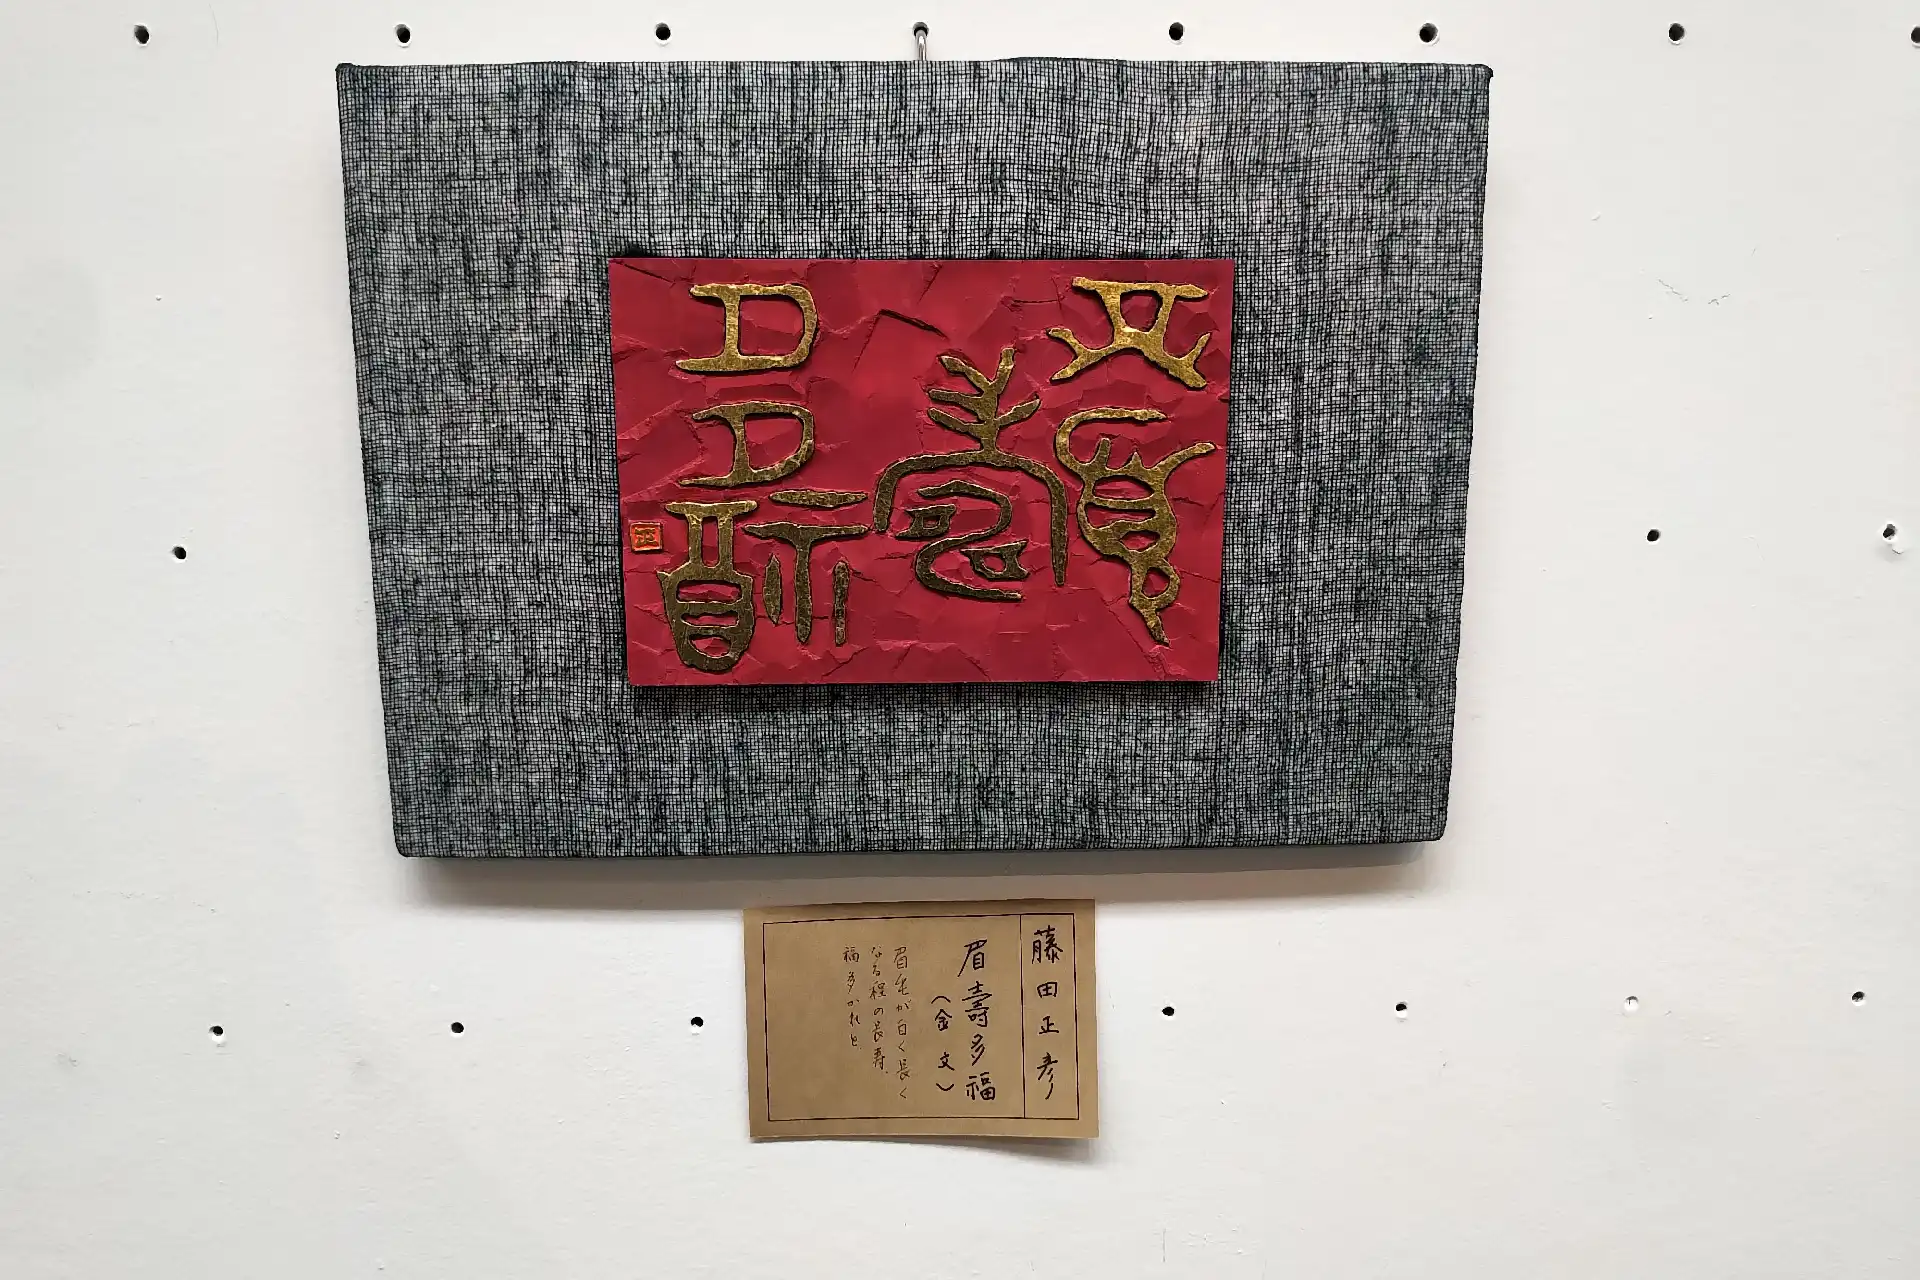 眉壽多福
正
藤田正彦
眉壽多福
（金文）
眉毛が白く長く
なる程の長寿、
福多かれと